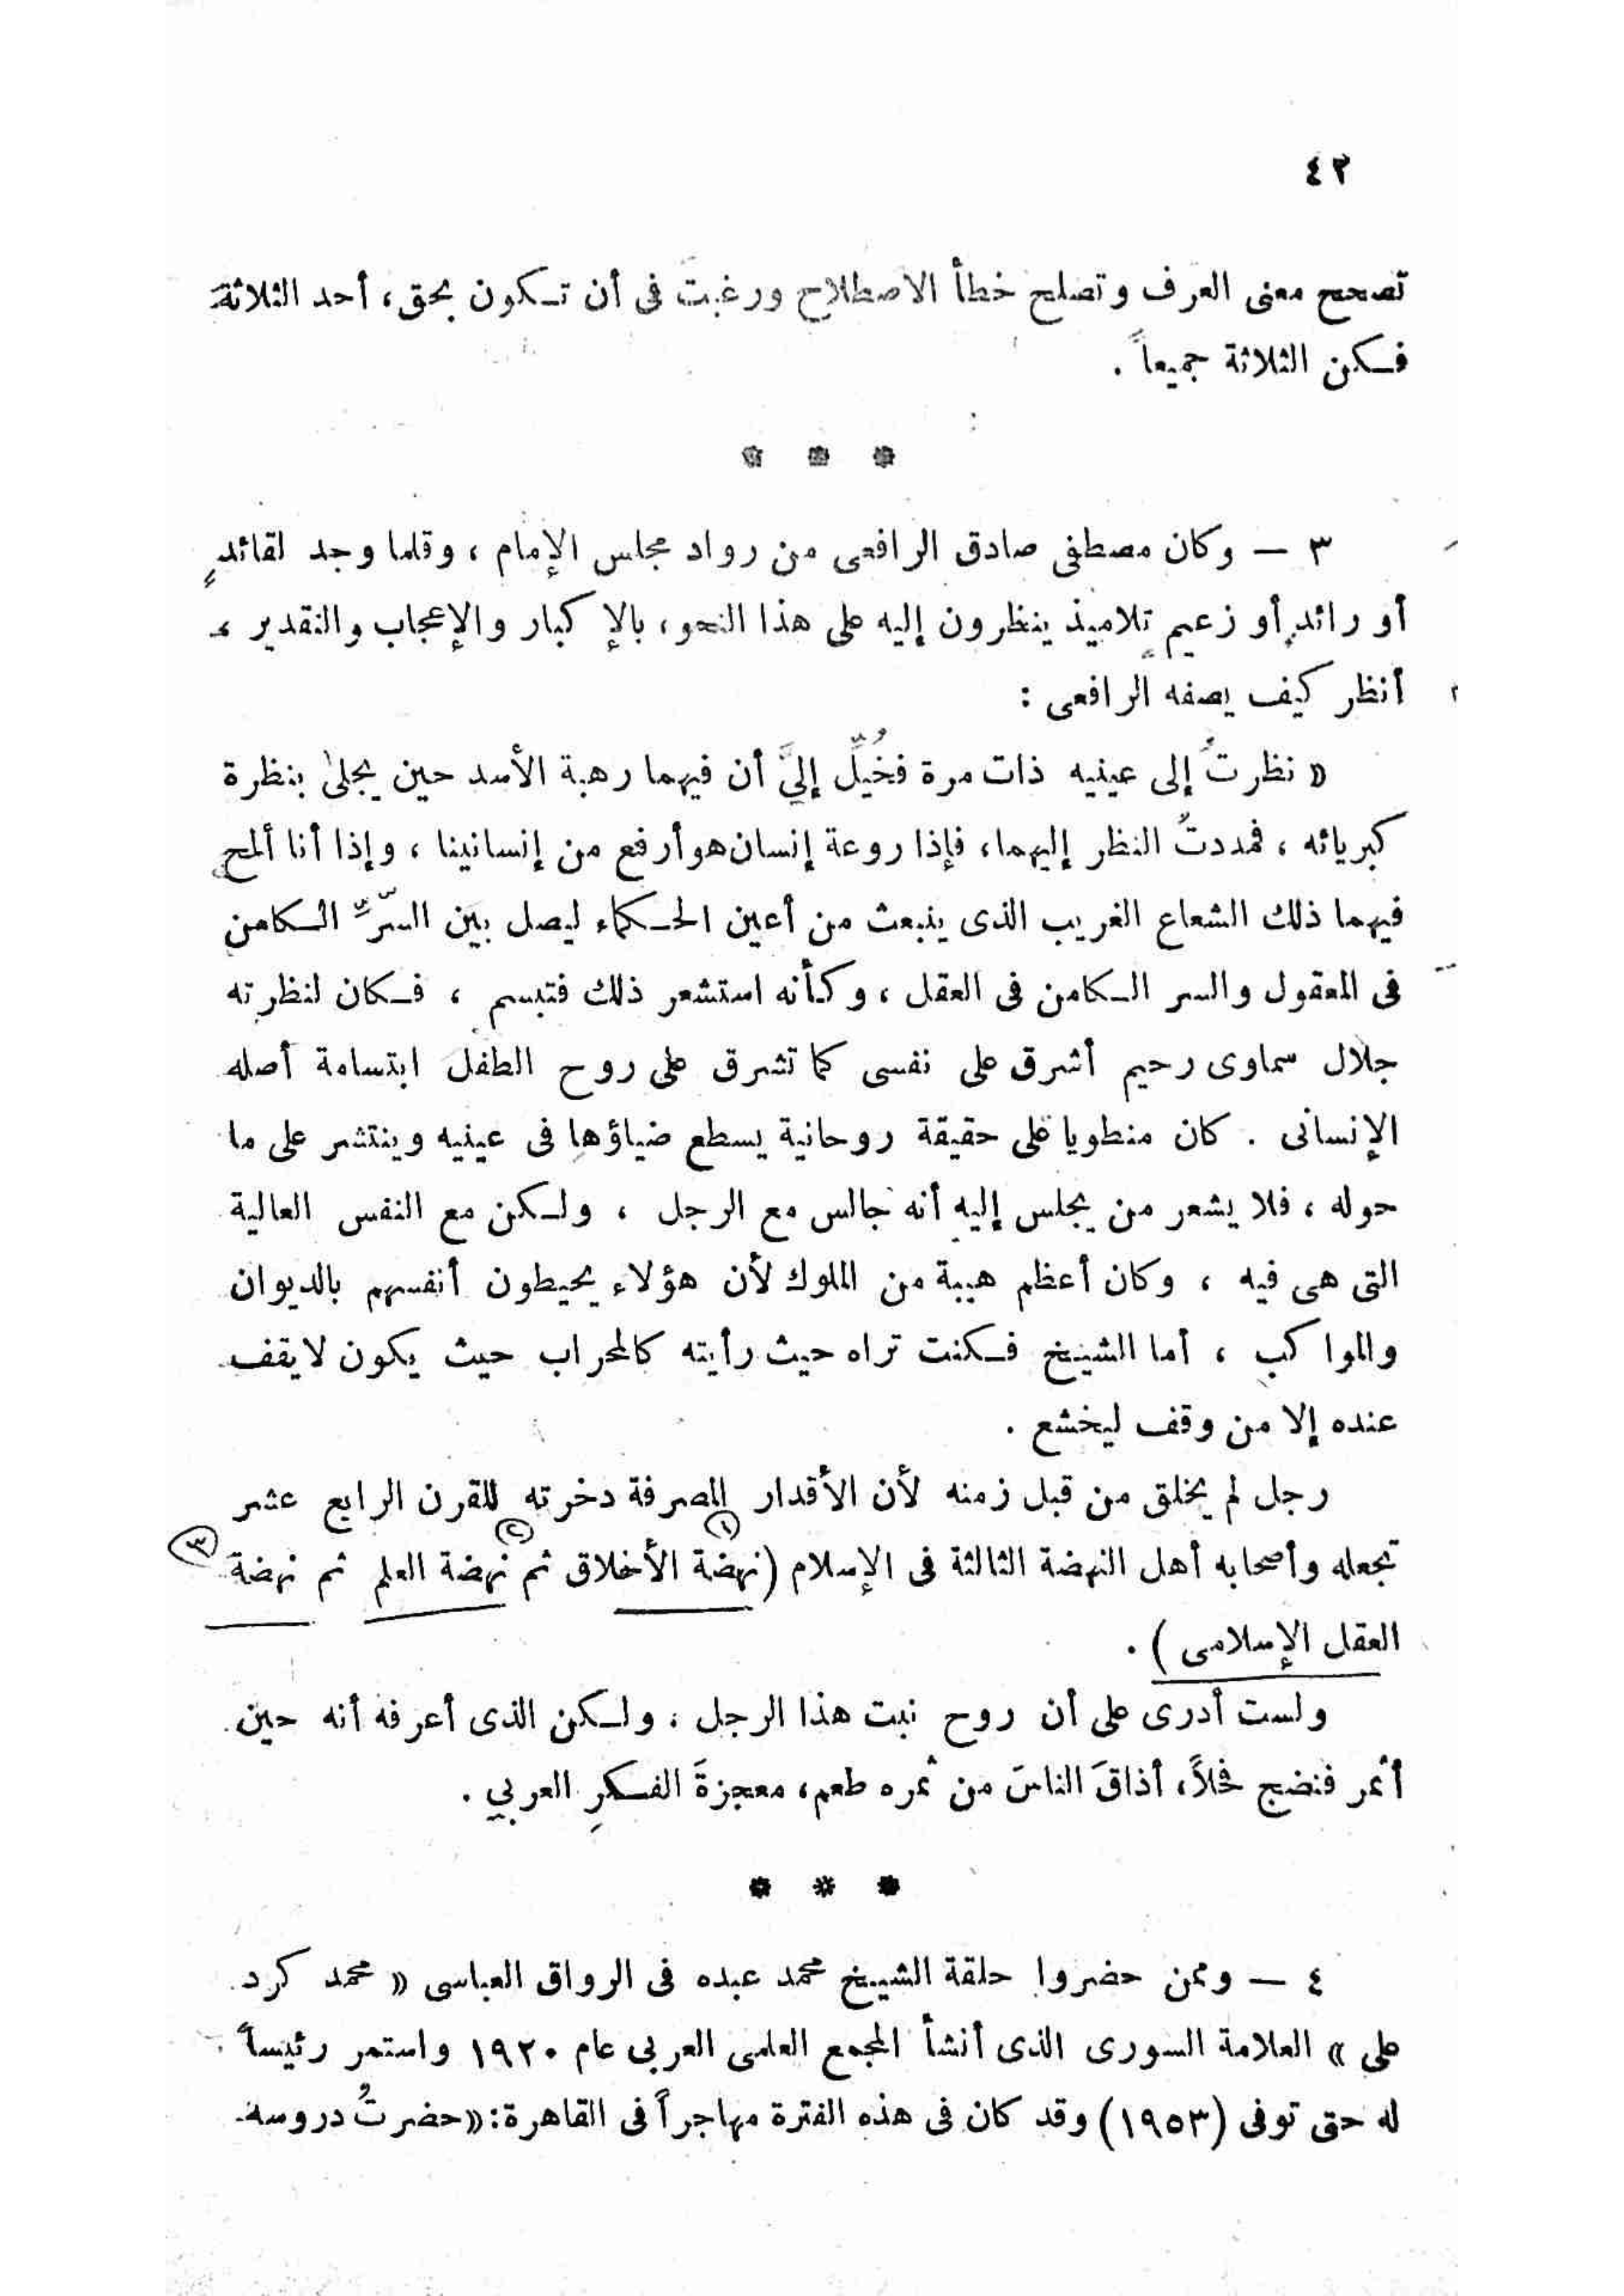 ٤٢
تصحح معنى العرف وتصلح خطأ الاصطلاح ورغبتَ فى أن تكون بحق، أحد الثلاثة
فكن الثلاثة جميعاً .
* * *
٣ — وكان مصطفى صادق الرافعى من رواد مجلس الإمام ، وقلما وجد لقائدٍ
أو رائدٍ أو زعيمٍ تلاميذ ينظرون إليه على هذا النحو، بالإكبار والإعجاب والتقدير ،
أنظر كيف يصفه الرافعى :
« نظرتُ إلى عينيه ذات مرة فخُيِّل إليَّ أن فيهما رهبة الأسد حين يجلى بنظرة
كبريائه ، فمددتُ النظر إليهما، فإذا روعة إنسان هو أرفع من إنسانينا ، وإذا أنا ألمح
فيهما ذلك الشعاع الغريب الذى ينبعث من أعين الحكماء ليصل بين السرِّ الكامن
فى المعقول والسر الكامن فى العقل ، وكأنه استشعر ذلك فتبسم ، فكان لنظرته
جلال سماوى رحيم أشرق على نفسى كما تشرق على روح الطفل ابتسامة أصله
الإنسانى . كان منطويا على حقيقة روحانية يسطع ضياؤها فى عينيه وينتشر على ما
حوله ، فلا يشعر من يجلس إليه أنه جالس مع الرجل ، ولكن مع النفس العالية
التى هى فيه ، وكان أعظم هيبة من الملوك لأن هؤلاء يحيطون أنفسهم بالديوان
والمواكب ، أما الشيخ فكنت تراه حيث رأيته كالمحراب حيث يكون لا يقف
عنده إلا من وقف ليخشع .
رجل لم يخلق من قبل زمنه لأن الأقدار المصرفة دخرته للقرن الرابع عشر
١ ٢ ٣
تجعله وأصحابه أهل النهضة الثالثة فى الإسلام (نهضة الأخلاق ثم نهضة العلم ثم نهضة
العقل الإسلامى ) .
ولست أدرى على أن روح نبت هذا الرجل ، ولكن الذى أعرفه أنه حين
أثمر فنضج فحلاً، أذاقَ الناسَ من ثمره طعم، معجزةَ الفكرِ العربي .
* * *
٤ — وممن حضروا حلقة الشيخ محمد عبده فى الرواق العباسى « محمد كرد
على » العلامة السورى الذى أنشأ المجمع العلمى العربى عام ١٩٢٠ واستمر رئيساً
له حتى توفى (١٩٥٣) وقد كان فى هذه الفترة مهاجراً فى القاهرة: «حضرتُ دروسه